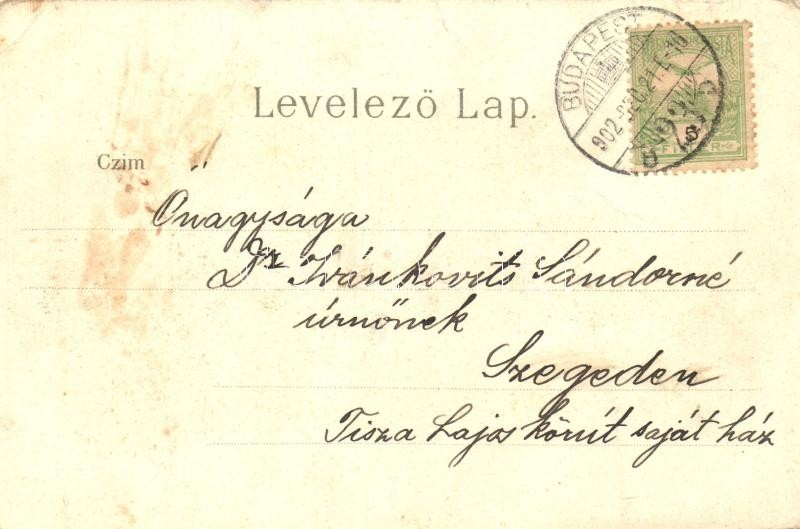 BUDAPEST
Levelezö Lap.
Czim
FILLÉR
Önagysága
Dr Ivánkovits Sándorné
úrnőnek
Szegeden
Tisza Lajos körút saját ház